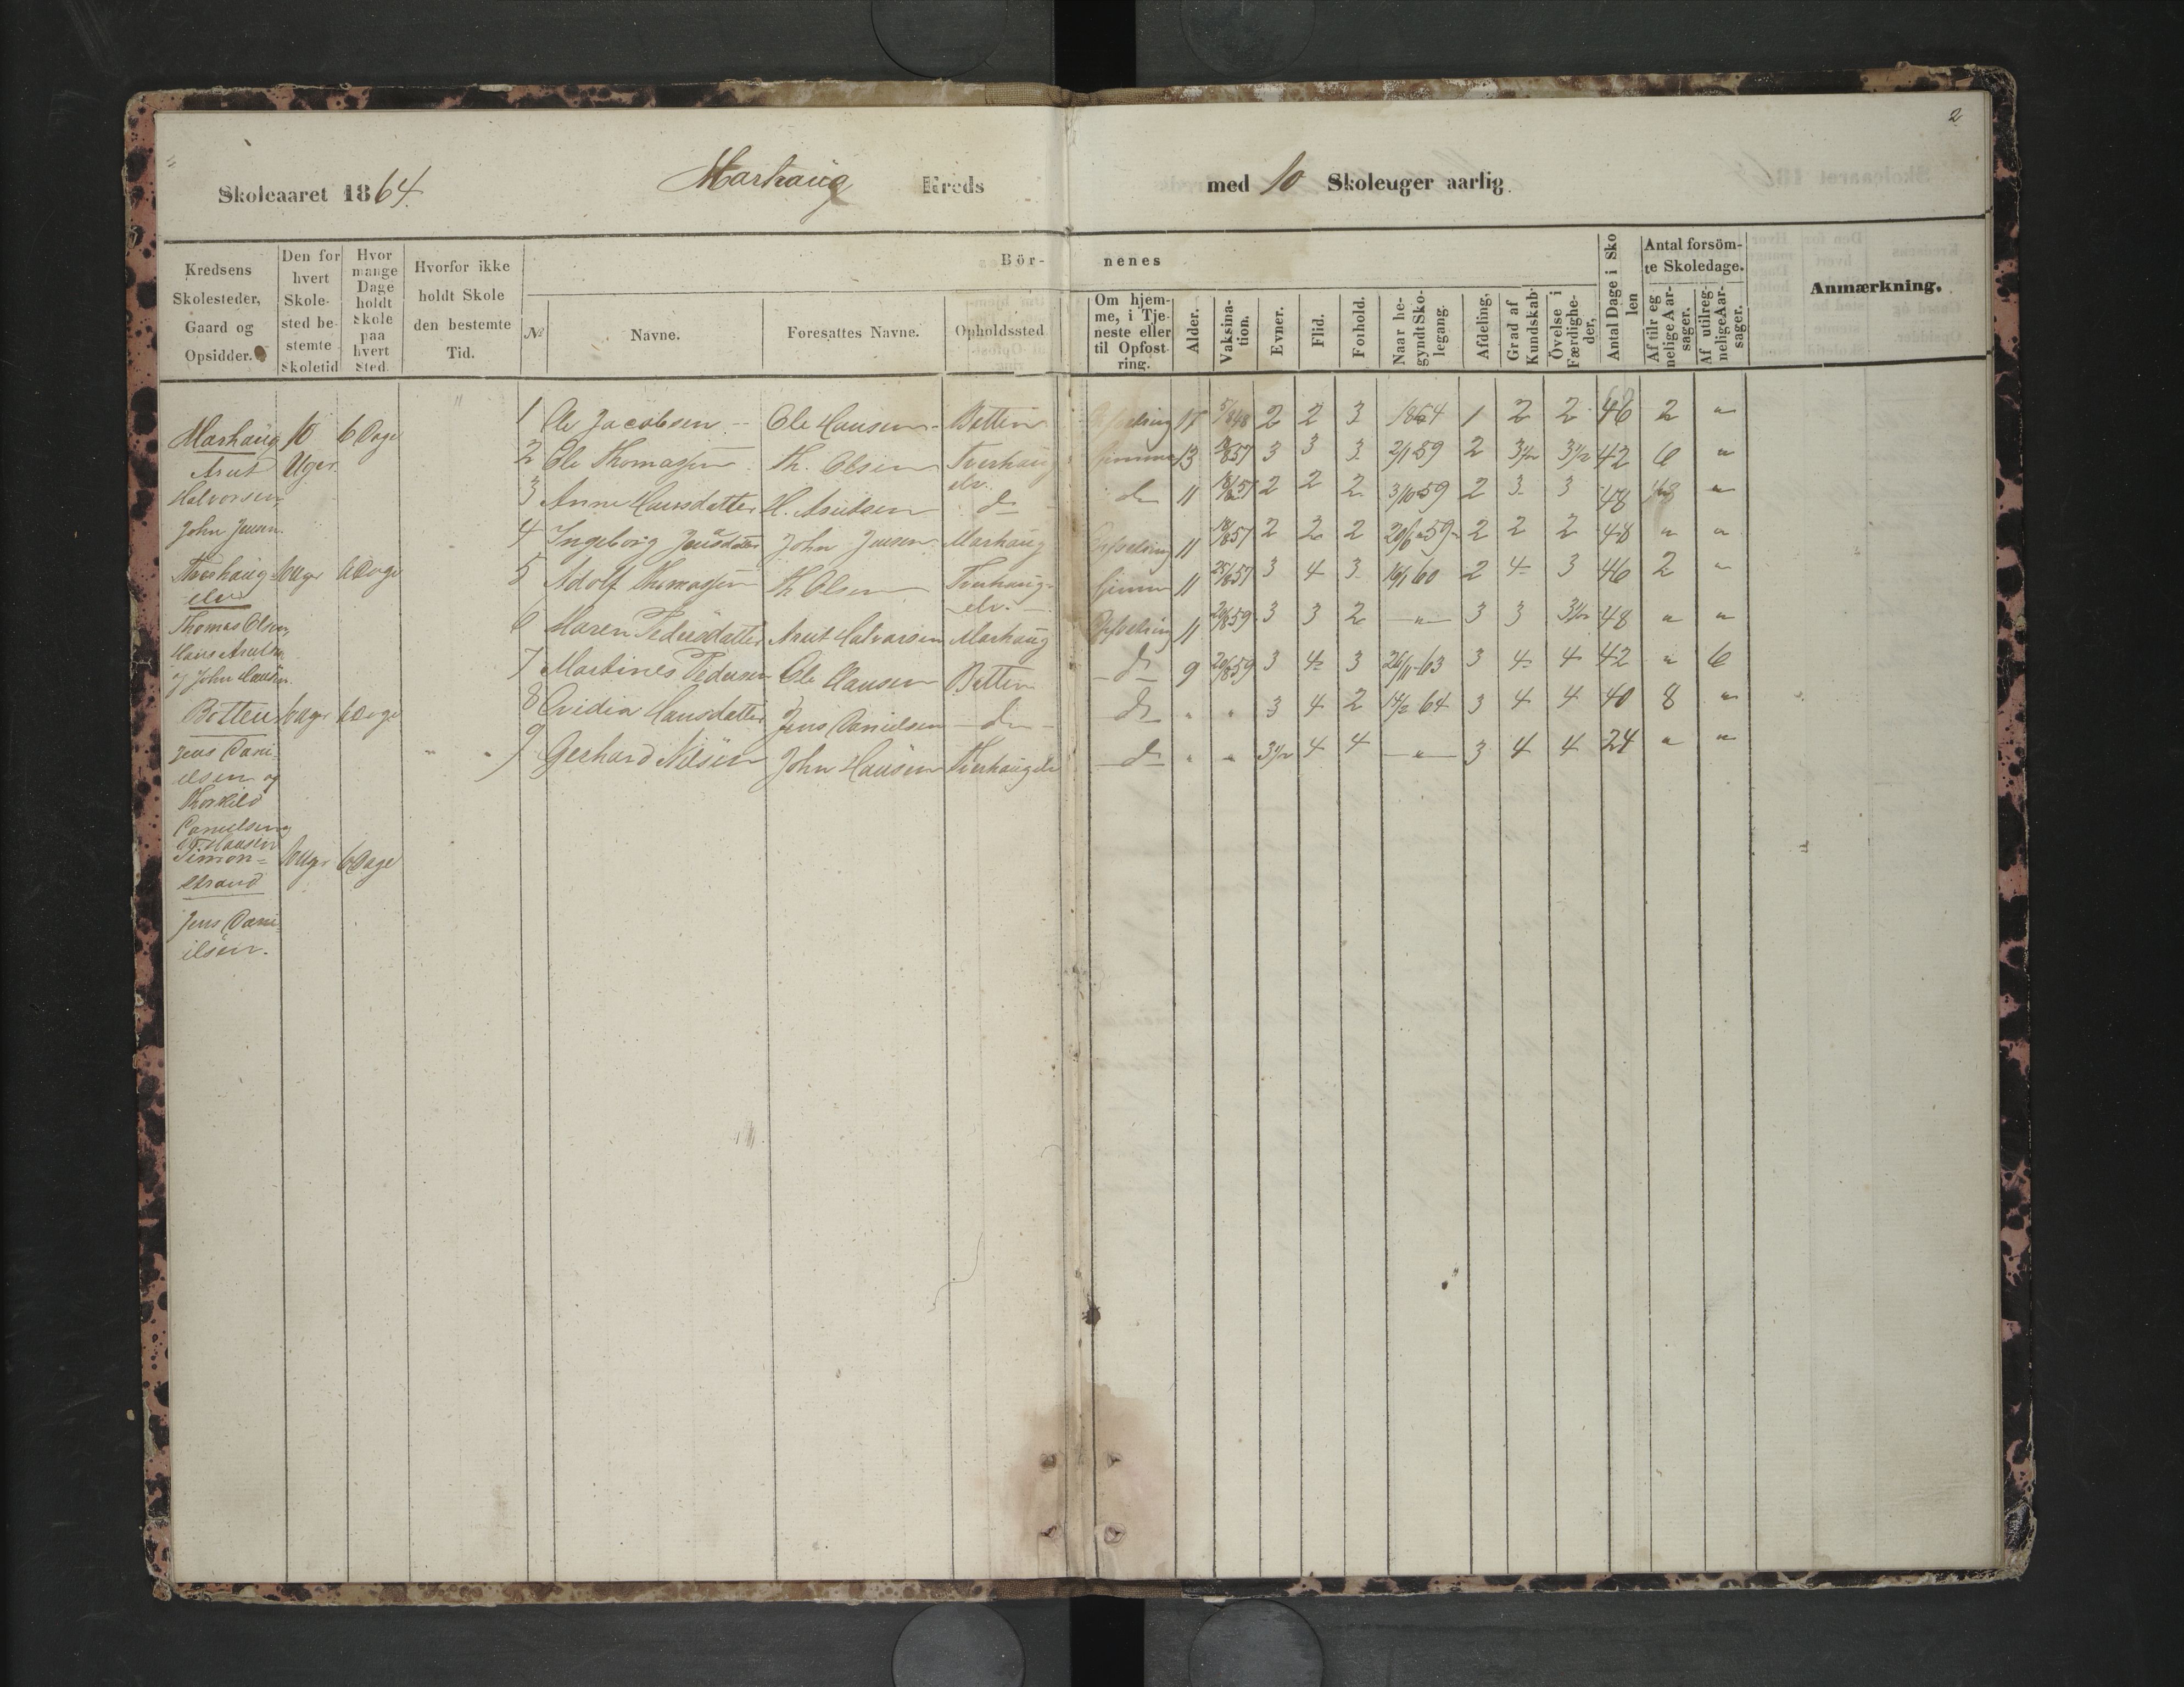 2
Skoleaaret 1864. Marhaug Kreds med 10 Skoleuger aarlig.
Kredsens Skolesteder, Gaard og Opsidder.
Den for hvert Skolested bestemte Skoletid
Hvor mange Dage holdt Skole paa hvert Sted.
Hvorfor ikke holdt Skole den bestemte Tid.
Bör- nenes
No
Navne.
Foresattes Navne.
Opholdssted
Om hjemme, i Tjeneste eller til Opfostring.
Alder.
Vaksination.
Evner.
Flid.
Forhold.
Naar begyndt Skolegang.
Afdeling,
Grad af Kundskab.
Övelse i Færdigheder,
Antal Dage i Skolen
Antal forsömte Skoledage.
Af tilregnelige Aarsager.
Af utilregnelige Aarsager.
Anmærkning.
1 Ole Jacobsen Ole Hansen Botten 17 5/848 2 2 3 1854 1 2 2 46 2 "
2 Ole Thomassen Th. Olsen Tverhaug elv. hjemme 13 857 3 3 3 2/1 59 2 3 1/2 3 1/2 42 6 "
3 Anne Hansdatter H. Arntsen do do 11 2 2 2 3/10 59 2 3 3 48 "
4 Ingeborg Jensdatter John Jensen Marhaug Opfostring 11 857 2 2 2 20/6 59 2 2 2 48 " "
5 Adolf Thomassen Th Olsen Tverhaug- elv. hjemme 11 25/857 3 4 3 16/1 60 2 4 3 46 2 "
6 Maren Pedersdatter Arnt Halvorsen Marhaug Opfostring 11 20/859 3 3 2 " 3 3 3 1/2 48 " "
7 Martines Pedersen Ole Hansen Botten do 9 20/859 3 4 3 26/11 63 3 4 4 42 " 6
8 Ovidia Hansdatter Jens Danielsen do do " " 3 4 2 14/2 64 3 4 4 40 8 "
9 Gerhard Nilsen John Hansen Tverhaugelv do " " 3 1/2 4 4 " 3 4 4 24 " "
Marhaug 10 6 Dage
Arnt Uger.
Halvorsen,
John Jensen.
Tverhaug- 6 Uger 6 Dage
elv
Thomas Olsen,
Hans Arntsen
og John Hansen.
Botten 6 Uger 6 Dage
Jens Dani-
elsen og
Thorkild
Danielsen og
O. Hansen
Simon- 6 Uger 6 Dage
strand
Jens Dani-
elsen.